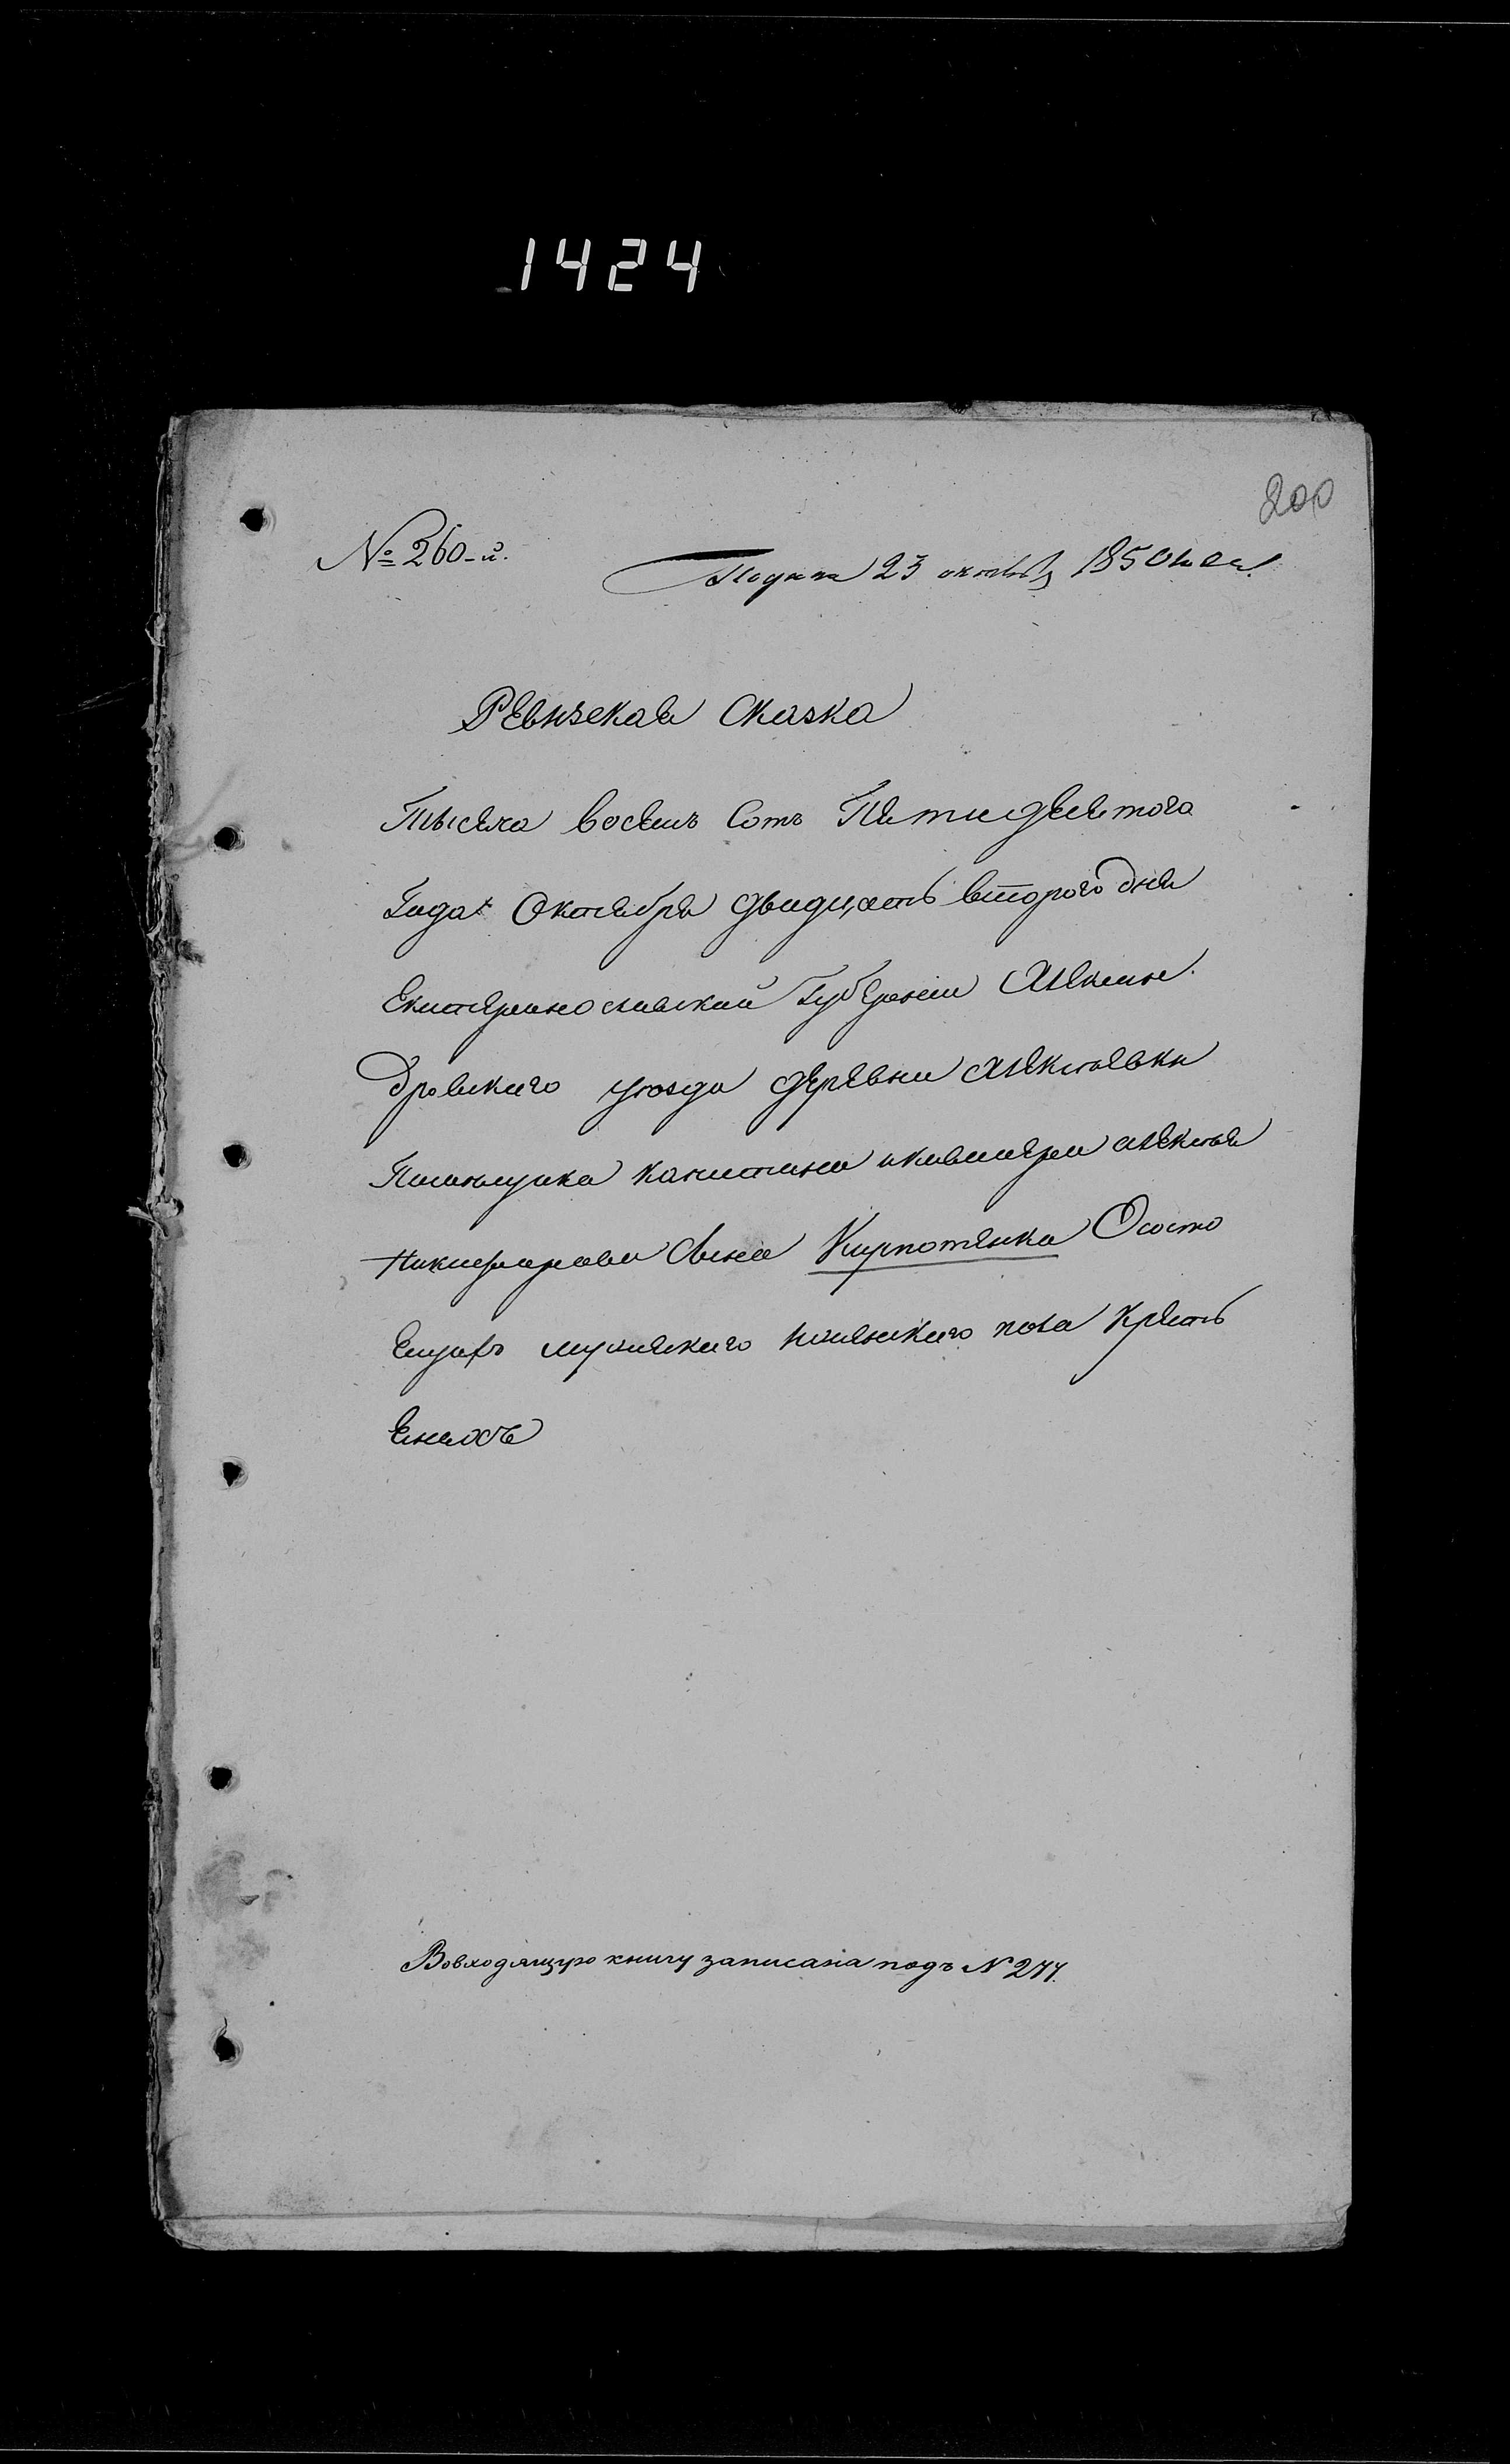 1424
200
№ 260-й.
Подана 23 октября 1850 года
Ревизская Сказка
Тысяча восемь Сотъ Пятидесятого
Года Октября двадцать второго дня
Екатеринославской Губернии Алексан
дровского уезда деревни Алексеевки
капитана икавалера алексея
Никифорова Сына Кирпотенка Ососто
ящихъ мужеска женскаго пола Кресть
Енахъ
Вовходящую книгу записана подъ N 277.